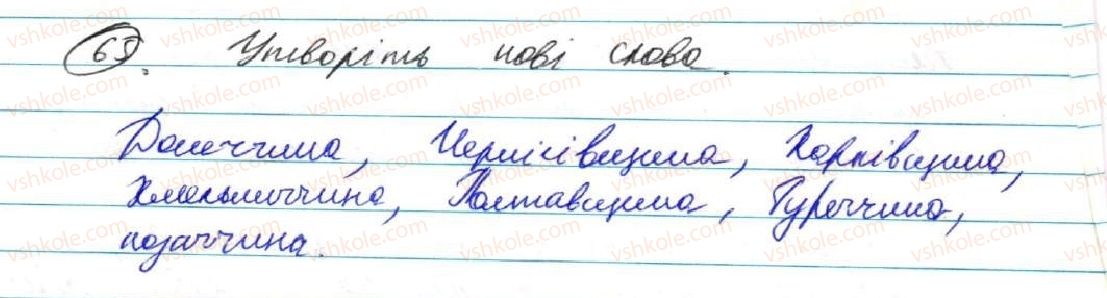 63. Утворіть нові слова.
Донеччина, Чернігівщина, Харківщина,
Хмельниччина, Полтавщина, Туреччина,
козаччина.